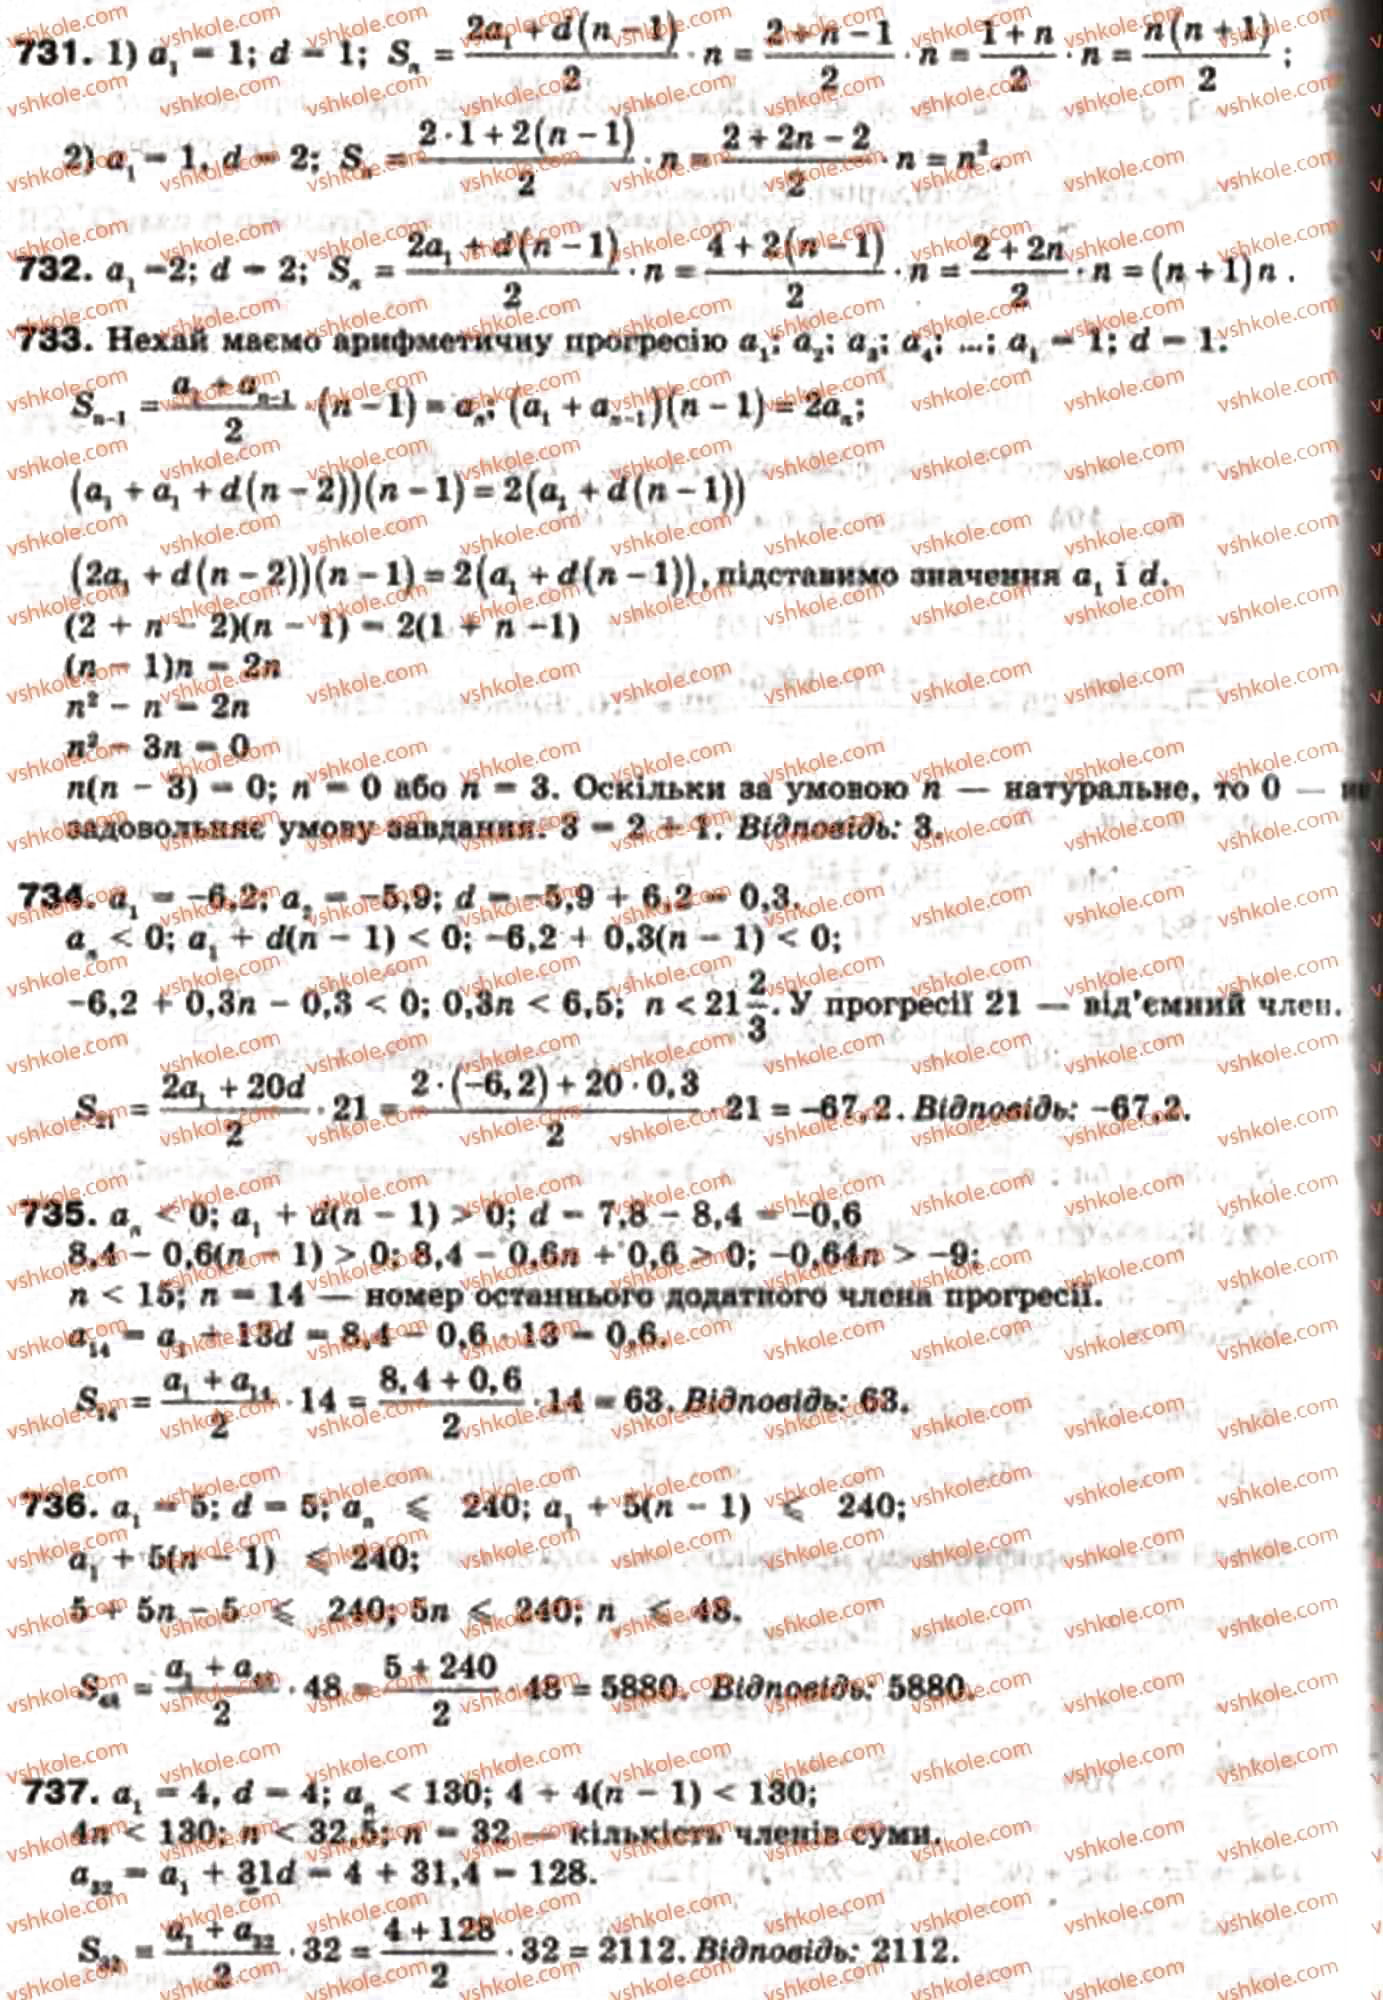 731. 1) a₁ = 1; d = 1; Sₙ = (2a₁ + d(n − 1))/2 · n = (2 + n − 1)/2 · n = (1 + n)/2 · n = n(n + 1)/2 ;
2) a₁ = 1, d = 2; Sₙ = (2 · 1 + 2(n − 1))/2 · n = (2 + 2n − 2)/2 · n = n².
732. a₁ =2; d = 2; Sₙ = (2a₁ + d(n − 1))/2 · n = (4 + 2(n − 1))/2 · n = (2 + 2n)/2 · n = (n + 1)n .
733. Нехай маємо арифметичну прогресію a₁; a₂; a₃; a₄; ...; a₁ = 1; d = 1.
Sₙ₋₁ = (a₁ + aₙ₋₁)/2 · (n − 1) = aₙ; (a₁ + aₙ₋₁)(n − 1) = 2aₙ;
(a₁ + a₁ + d(n − 2))(n − 1) = 2(a₁ + d(n − 1))
(2a₁ + d(n − 2))(n − 1) = 2(a₁ + d(n − 1)), підставимо значення a₁ і d.
(2 + n − 2)(n − 1) = 2(1 + n −1)
(n − 1)n = 2n
n² − n = 2n
n² − 3n = 0
n(n − 3) = 0; n = 0 або n = 3. Оскільки за умовою n — натуральне, то 0 — не
задовольняє умову завдання. 3 = 2 + 1. Відповідь: 3.
734. a₁ = −6,2; a₂ = −5,9; d = −5,9 + 6,2 = 0,3.
aₙ < 0; a₁ + d(n − 1) < 0; −6,2 + 0,3(n − 1) < 0;
−6,2 + 0,3n − 0,3 < 0; 0,3n < 6,5; n < 21 2/3. У прогресії 21 — від'ємний член.
S₂₁ = (2a₁ + 20d)/2 · 21 = (2 · (−6,2) + 20 · 0,3)/2 · 21 = −67,2. Відповідь: −67,2.
735. aₙ < 0; a₁ + d(n − 1) > 0; d = 7,8 − 8,4 = −0,6
8,4 − 0,6(n − 1) > 0; 8,4 − 0,6n + 0,6 > 0; −0,64n > −9;
n < 15; n = 14 — номер останнього додатного члена прогресії.
a₁₄ = a₁ + 13d = 8,4 − 0,6 · 13 = 0,6.
S₁₄ = (a₁ + a₁₄)/2 · 14 = (8,4 + 0,6)/2 · 14 = 63. Відповідь: 63.
736. a₁ = 5; d = 5; aₙ ⩽ 240; a₁ + 5(n − 1) ⩽ 240;
a₁ + 5(n − 1) ⩽ 240;
5 + 5n − 5 ⩽ 240; 5n ⩽ 240; n ⩽ 48.
S₄₈ = (a₁ + a₄₈)/2 · 48 = (5 + 240)/2 · 48 = 5880. Відповідь: 5880.
737. a₁ = 4, d = 4; aₙ < 130; 4 + 4(n − 1) < 130;
4n < 130; n < 32,5; n = 32 — кількість членів суми.
a₃₂ = a₁ + 31d = 4 + 31,4 = 128.
S₃₂ = (a₁ + a₃₂)/2 · 32 = (4 + 128)/2 · 32 = 2112. Відповідь: 2112.
vshkole.com